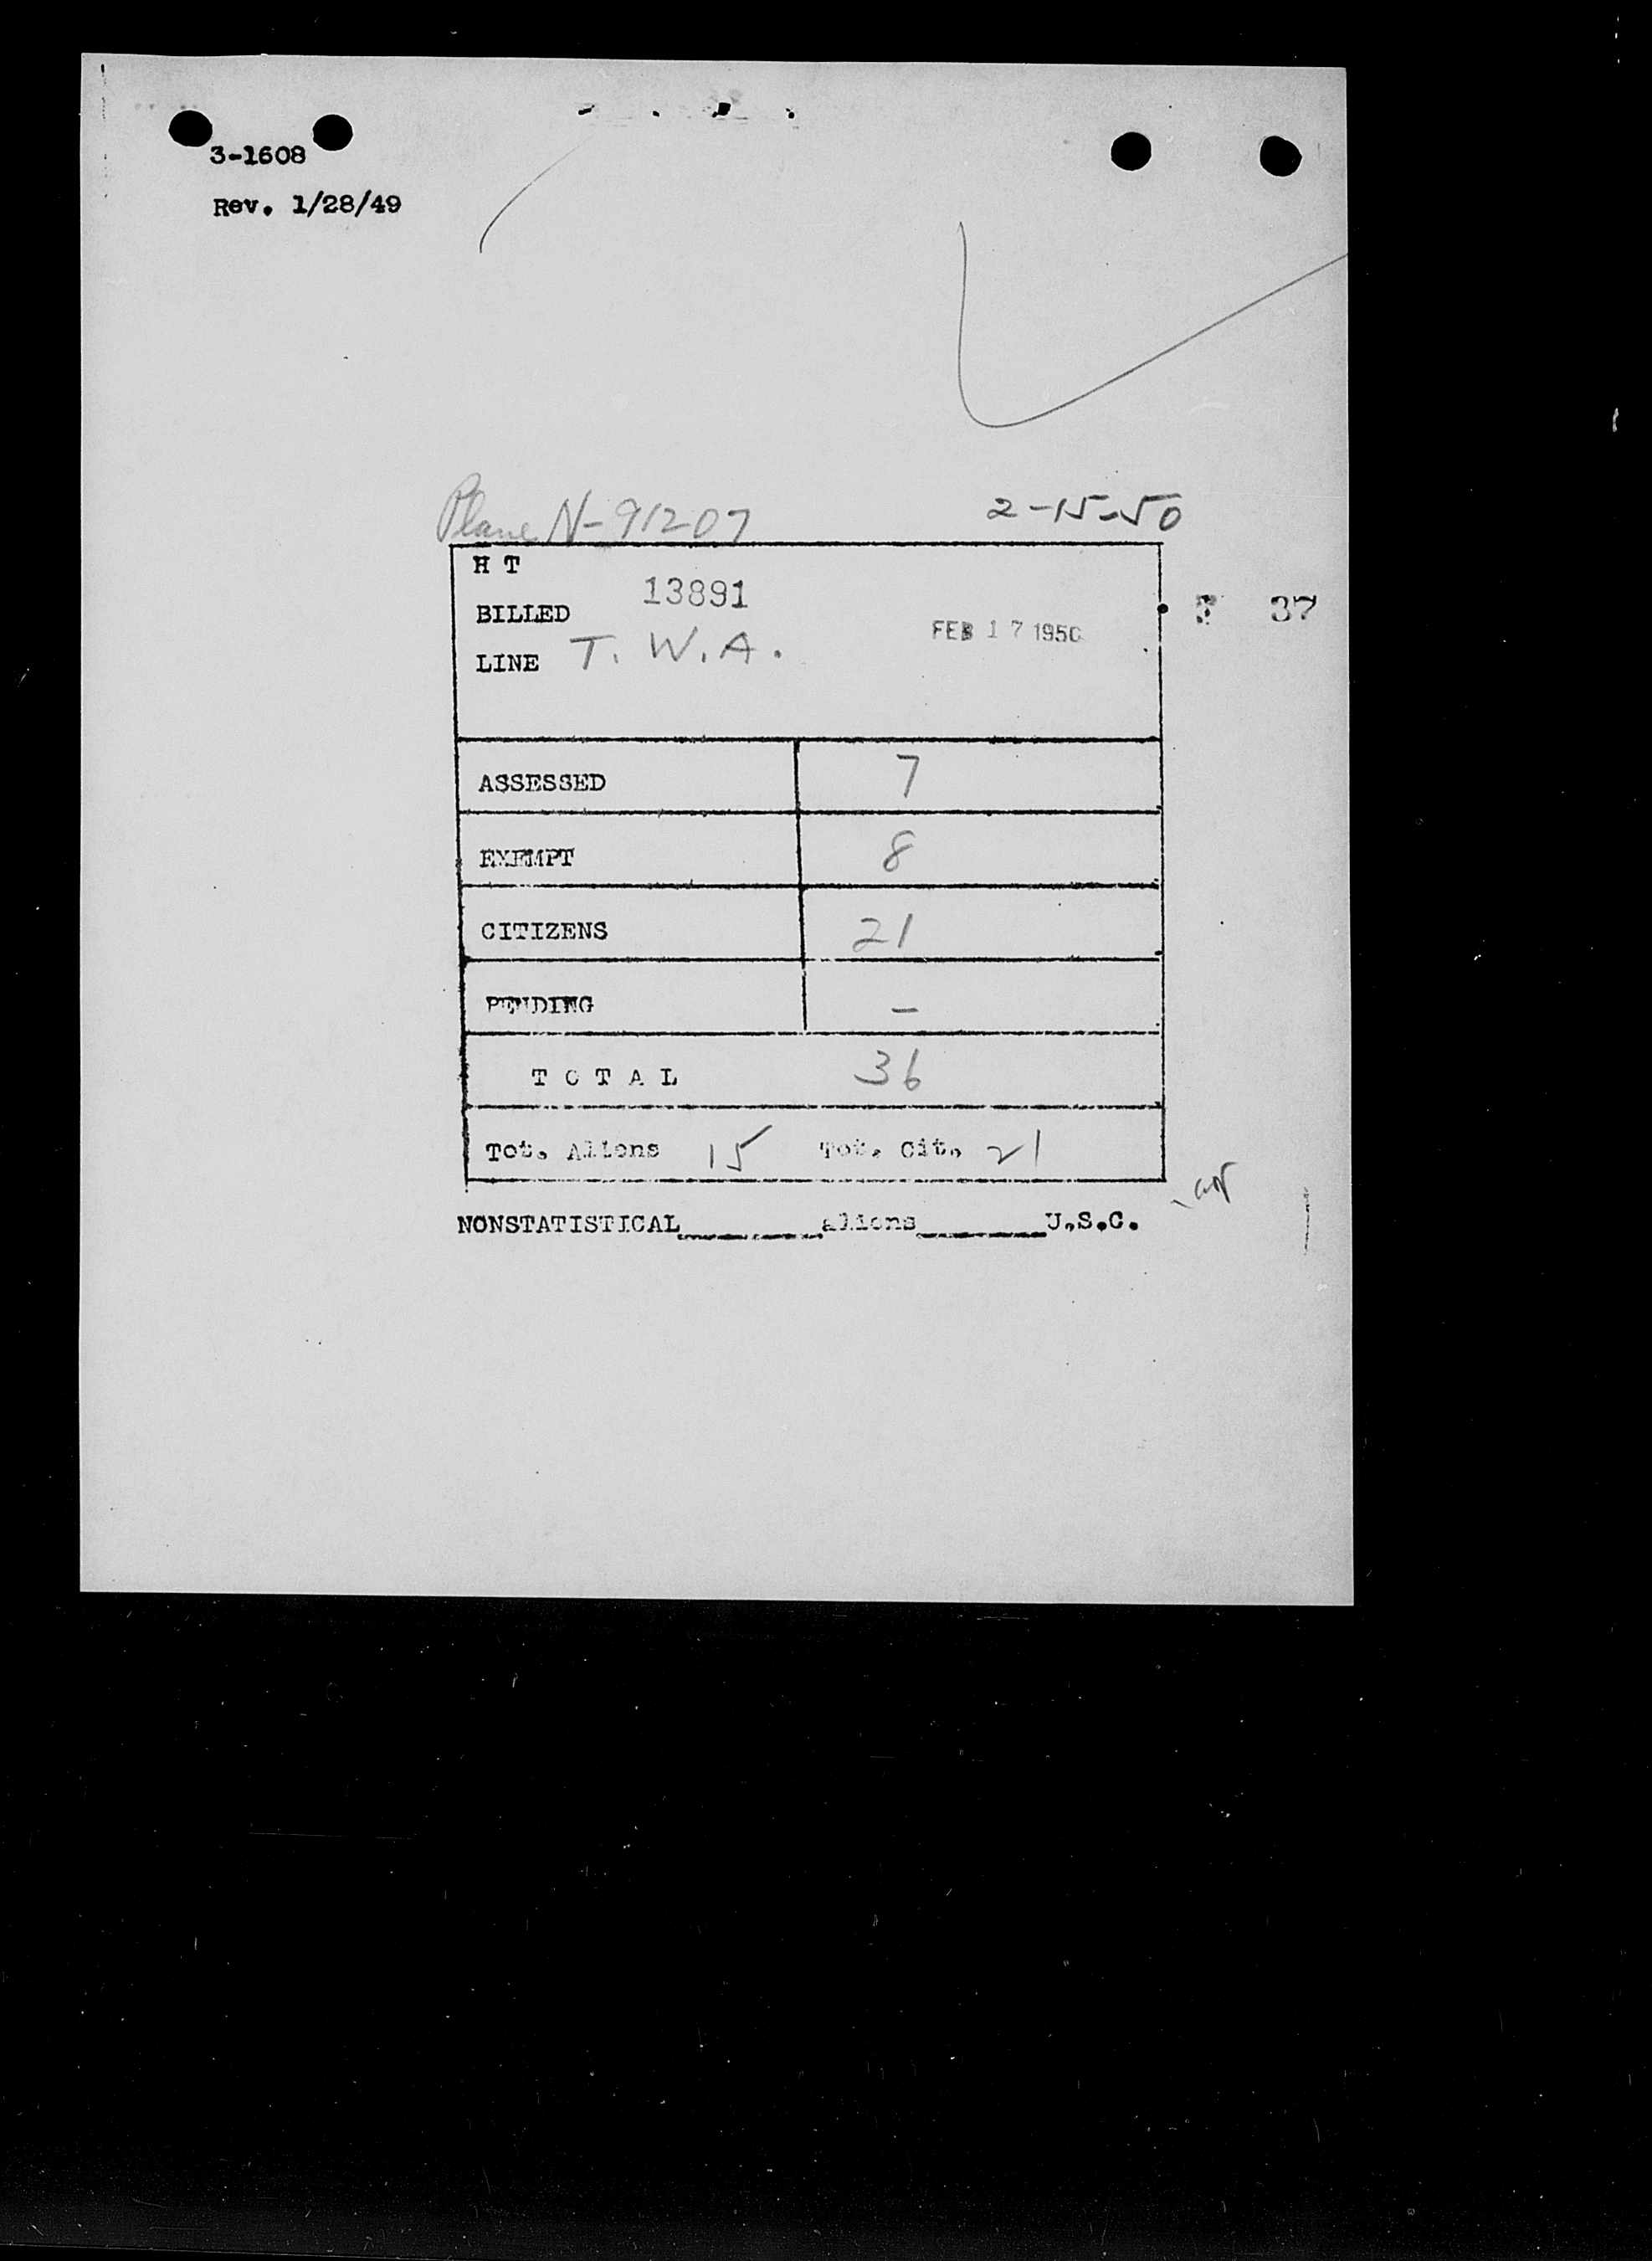 3-1608
Rev. 1/28/49
Plane N-91207 2-15-50
H T
13891
BILLED
FEB 17 1950
LINE T. W. A.
37
ASSESSED 7
EXEMPT 8
CITIZENS 21
PENDING -
TOTAL 36
Tot. Aliens 15 Tot. Cit. 21
NONSTATISTICAL________aliens________U.S.C.